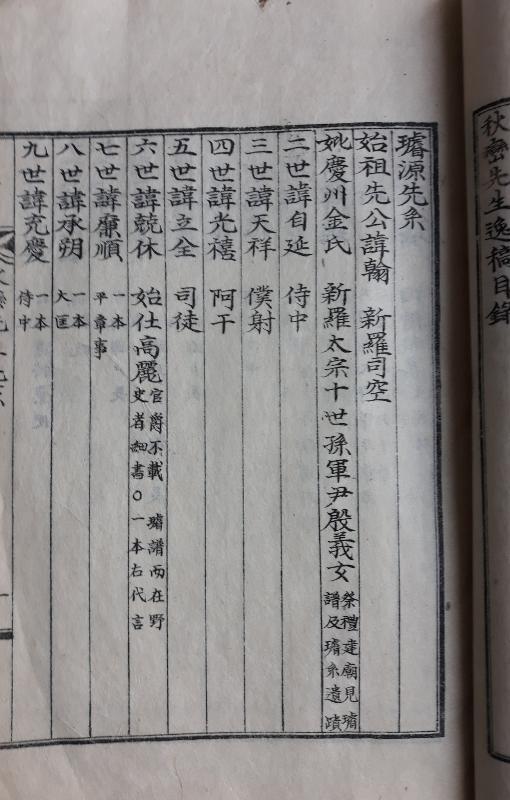 秋巒先生逸稿目錄
璿源先系
始祖先公諱翰 新羅司空
妣慶州金氏 新羅太宗十世孫軍尹殷義女 祭禮建廟見璿譜及璿系遺蹟
二世諱自延 侍中
三世諱天祥 僕射
四世諱光禧 阿干
五世諱立全 司徒
六世諱兢休 始仕高麗 官爵不載 璿譜而在野史者細書○一本右代言
七世諱廉順 一本平章事
八世諱承朔 一本大匡
九世諱充慶 一本侍中